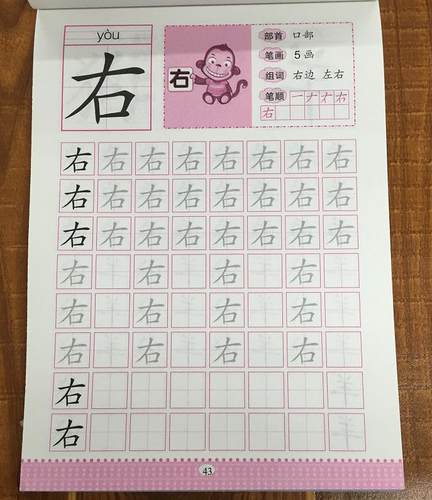 yòu
右
右
部首 口部
笔画 5画
组词 右边 左右
笔顺 一 ナ
右
右 右 右 右 右 右 右 右
右 右 右 右 右 右 右 右
右 右 右 右 右 右 右 右
右 右 右 右
右 右 右 右
右 右 右 右
右
右
43